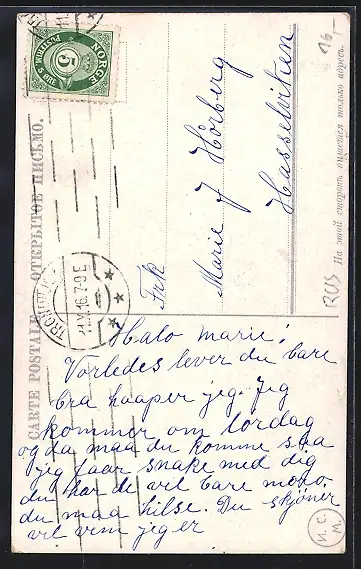 CARTE POSTALE. ОТКРЫТОЕ ПИСЬМО.
На этой сторонѣ пишется только адресъ.
NORGE
POSTFRIM
5
11.X.16.7-9 E
Frk
Marie J Hörberg
Hasselviken
16,-
RUS
Halo marie!
Vorledes lever du bare
bra haaper jeg. Jeg
kommer om lordag
og da maa du komme saa
jeg faar snake med dig
du har de vel bare moro.
du maa hilse. Du skjöner
vel vem jeg er
И.С.
М.